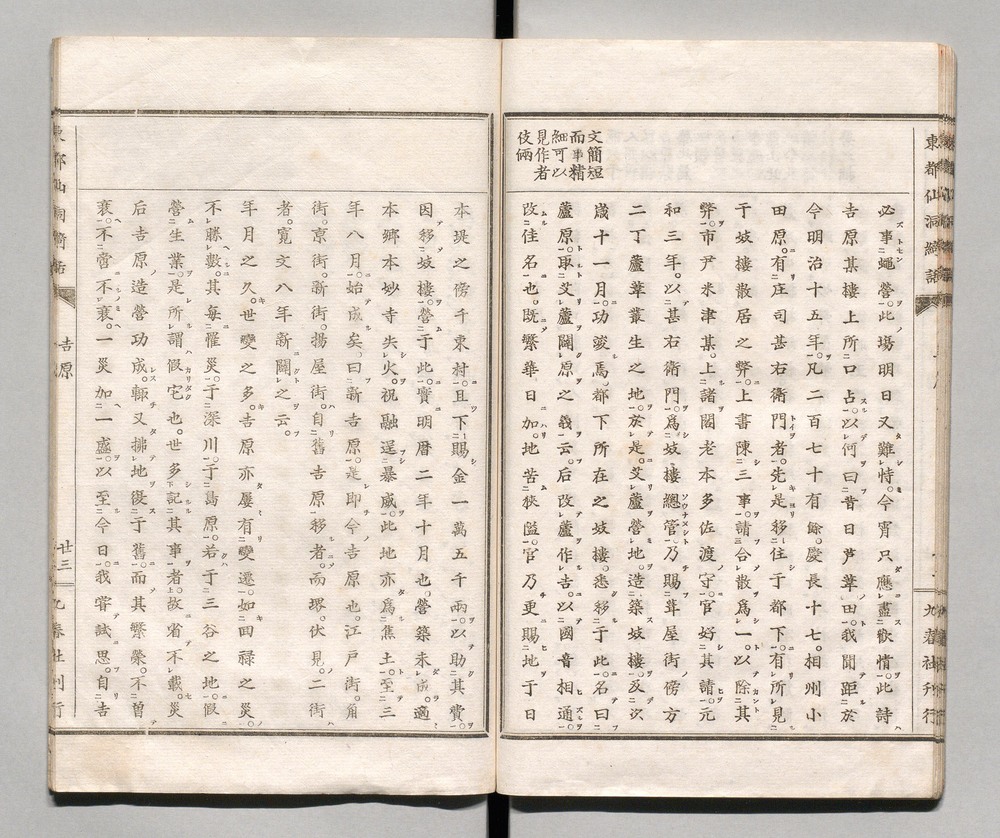 文簡短
而事精
細可以
見作者
伎倆
必事蠅營。此場明日又難恃。今宵只應盡歡情。此詩
吉原某樓上所口占。以何曰昔日芦葦田。我聞距於
今明治十五年。凡二百七十有餘。慶長十七。相州小
田原。有庄司甚右衛門者。先是移住于都下。有所見
于妓樓散居之弊。上書陳三事。請合散爲一。以除其
弊。市尹米津某。上諸閣老本多佐渡守。官好其請。元
和三年。以甚右衛門。爲妓樓總管。乃賜葺屋街傍方
二丁蘆葦叢生之地。於是。艾蘆營地。造築妓樓。及次
歲十一月。功竣焉。都下所在之妓樓。悉移于此。名曰
蘆原。取艾蘆闢原之義云。后改蘆作吉。以國音相通。
改佳名也。既繁華日加。地苦狹隘。官乃更賜地于日
東都仙洞綺話
九春社刋行
本堤之傍千東村。且下賜金一萬五千兩。以助其費。
因移妓樓。營于此。實明曆二年十月也。營築未成。適
本鄉本妙寺失火。祝融逞暴威。此地亦爲焦土。至三
年八月。始成矣。曰新吉原。是即今吉原也。江戸街。角
街。京街。新街。揚屋街。自舊吉原移者。而堺。伏見。二街
者。寬文八年新闢之云。
年月之久。世變之多。吉原亦屢有變遷。如回祿之災。
不勝數。其每罹災。于深川。于島原。若于三谷之地。假
營生業。是所謂假宅也。世多記其事者。故省不載。災
后吉原造營功成。輙又拂地復于舊。而其繁榮。不曾
衰。不啻不衰。一災加一盛。以至今日。我嘗試思。自吉
東都仙洞綺話
吉原
廿三
九春社刋行